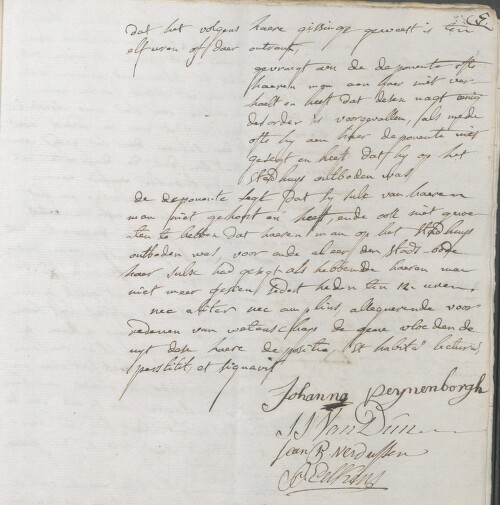 dat het volgens haere gissinge geweest is ten
elf uren of daer ontrent,
gevraegt aen de deponente ofte
haeren man aen haer niet ver
haelt en heeft dat desen nagt eenig
desorder is voorgevallen, als mede
ofte hy aen haer deponente niet
gesegt en heeft dat hy op het
Stadhuys ontboden was,
de deponente segt dat hy sulx van haeren
man niet gehoort en heeft, ende ook niet gewe
ten te hebben dat haeren man op het Stadhuys
ontboden was, voor ende aleer den Stads bode
haer sulx had gesegt als hebbende haeren man
niet meer gesien sedert heden ten 12 uren.
nec aliter nec amplius, allegerende voor
redenen van wetenschap de gene vloeiende
uyt dese haere depositie, et habita lectura
perstitit et signavit
Johanna Peynenborgh
J J Van Dun
Jean B Verdussen